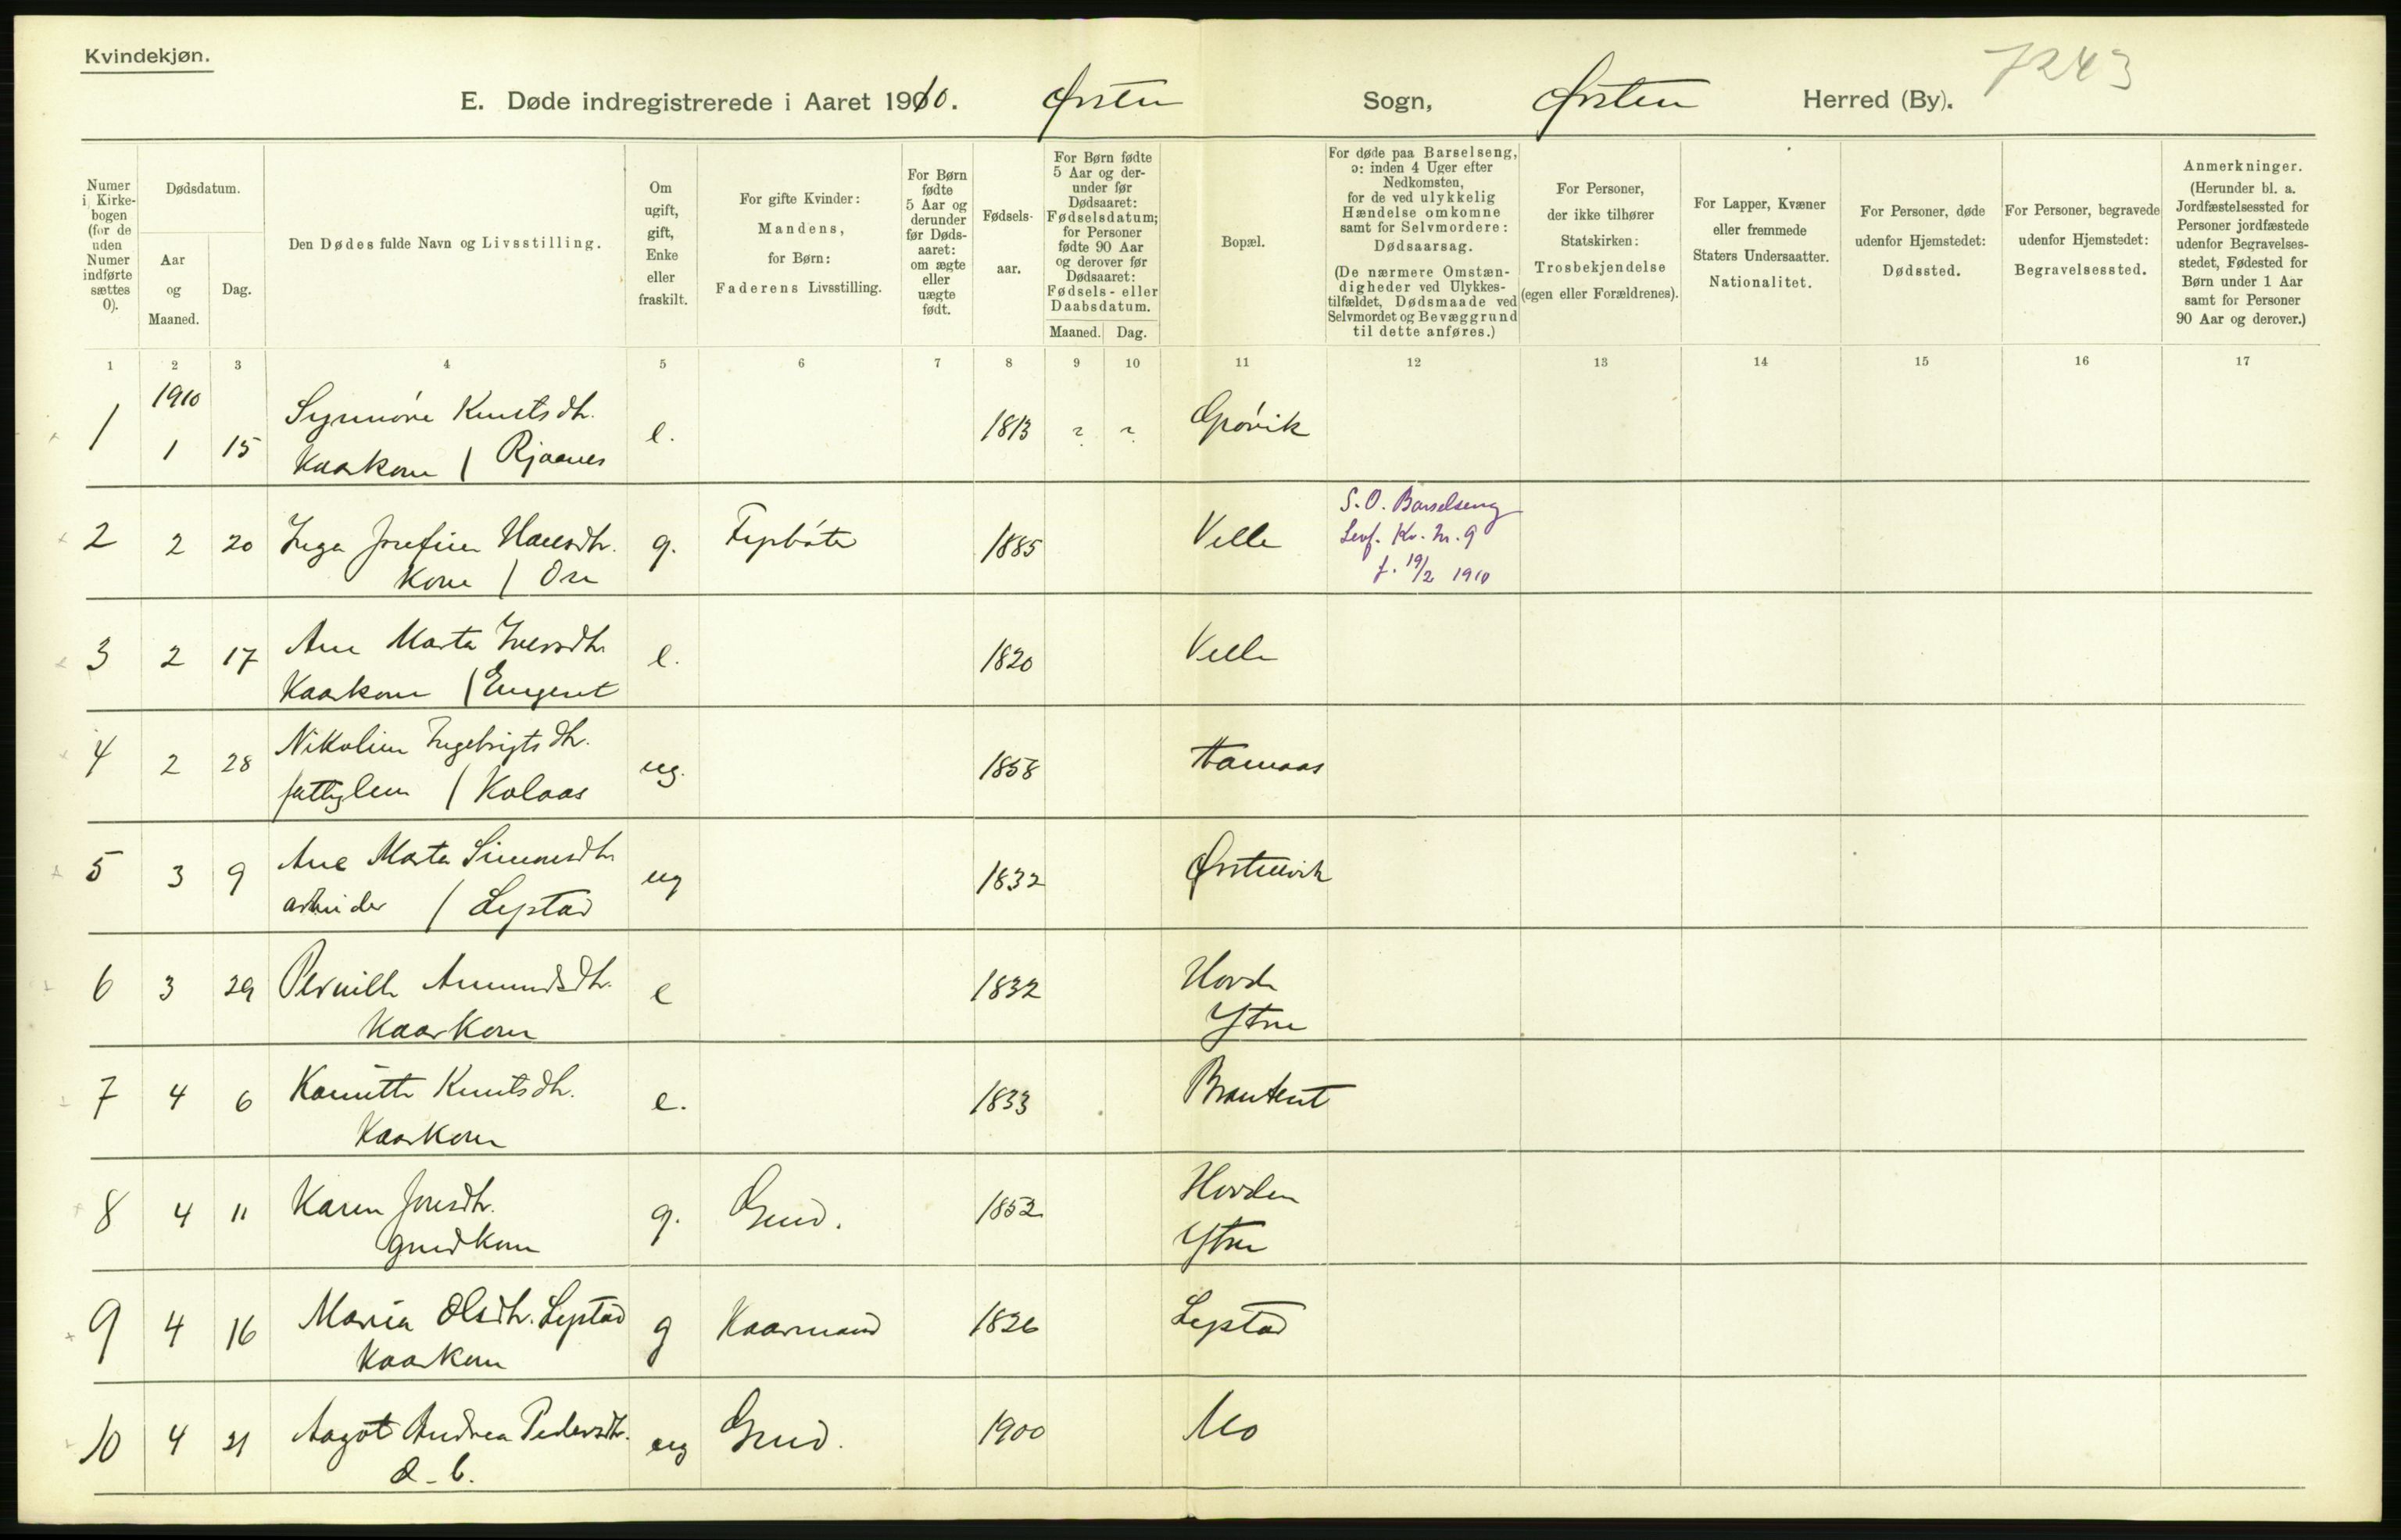 Kvindekjøn.
7243
E. Døde indregistrerede i Aaret 1910. Ørsten Sogn, Ørsten Herred (By).
Numer i Kirkebogen (for de uden Numer indførte sættes 0).
Dødsdatum.
Aar og Maaned.
Dag.
Den Dødes fulde Navn og Livsstilling.
Om ugift, gift, Enke eller fraskilt.
For gifte Kvinder: Mandens, for Børn: Faderens Livsstilling.
For Børn fødte 5 Aar og derunder før Dødsaaret: om ægte eller uægte født.
Fødselsaar.
For Børn fødte 5 Aar og derunder før Dødsaaret: Fødselsdatum; for Personer fødte 90 Aar og derover før Dødsaaret: Fødsels- eller Daabsdatum.
Maaned. Dag.
Bopæl.
For døde paa Barselseng, ɔ: inden 4 Uger efter Nedkomsten, for de ved ulykkelig Hændelse omkomne samt for Selvmordere: Dødsaarsag.
(De nærmere Omstændigheder ved Ulykkestilfældet, Dødsmaade ved Selvmordet og Bevæggrund til dette anføres.)
For Personer, der ikke tilhører Statskirken: Trosbekjendelse (egen eller Forældrenes).
For Lapper, Kvæner eller fremmede Staters Undersaatter. Nationalitet.
For Personer, døde udenfor Hjemstedet: Dødssted.
For Personer, begravede udenfor Hjemstedet: Begravelsessted.
Anmerkninger.
(Herunder bl. a. Jordfæstelsessted for Personer jordfæstede udenfor Begravelsesstedet, Fødested for Børn under 1 Aar samt for Personer 90 Aar og derover.)
1 2 3 4 5 6 7 8 9 10 11 12 13 14 15 16 17
1910
1 1 15 Synnøve Knutsdtr. e. 1813 ? ?
Kaarkone / Rjaanes
S. O. Barselseng
2 2 20 Inga Josefine Hansdtr. g. 1885 Velle Levf. Kv. Nr. 9
Kone / Ose f. 19/2 1910
3 2 17 Ane Marta Iversdtr. e. 1820 Velle
Kaarkone / Engeset
4 2 28 Nikoline Ingebrigtsdtr. ug. 1858
fattiglem / Kolaas
5 3 9 Ane Marta Simonsdtr ug 1832 Ørstenvik
arbeider / Lystad
6 3 29 Pernille Amundsdtr. e 1832 Hovde
Kaarkone Ytre
7 4 6 Knutsdtr. e. 1833
Kaarkone
8 4 11 Karen Jonsdtr. g. Grd. 1852 Hovden
grdkone Ytre
9 4 16 Maria Olsdtr. Lystad g Kaarmand 1826 Lystad
Kaarkone
10 4 21 Aagot Andrea Pedersdtr. ug Grd. 1900 Mo
d. b.